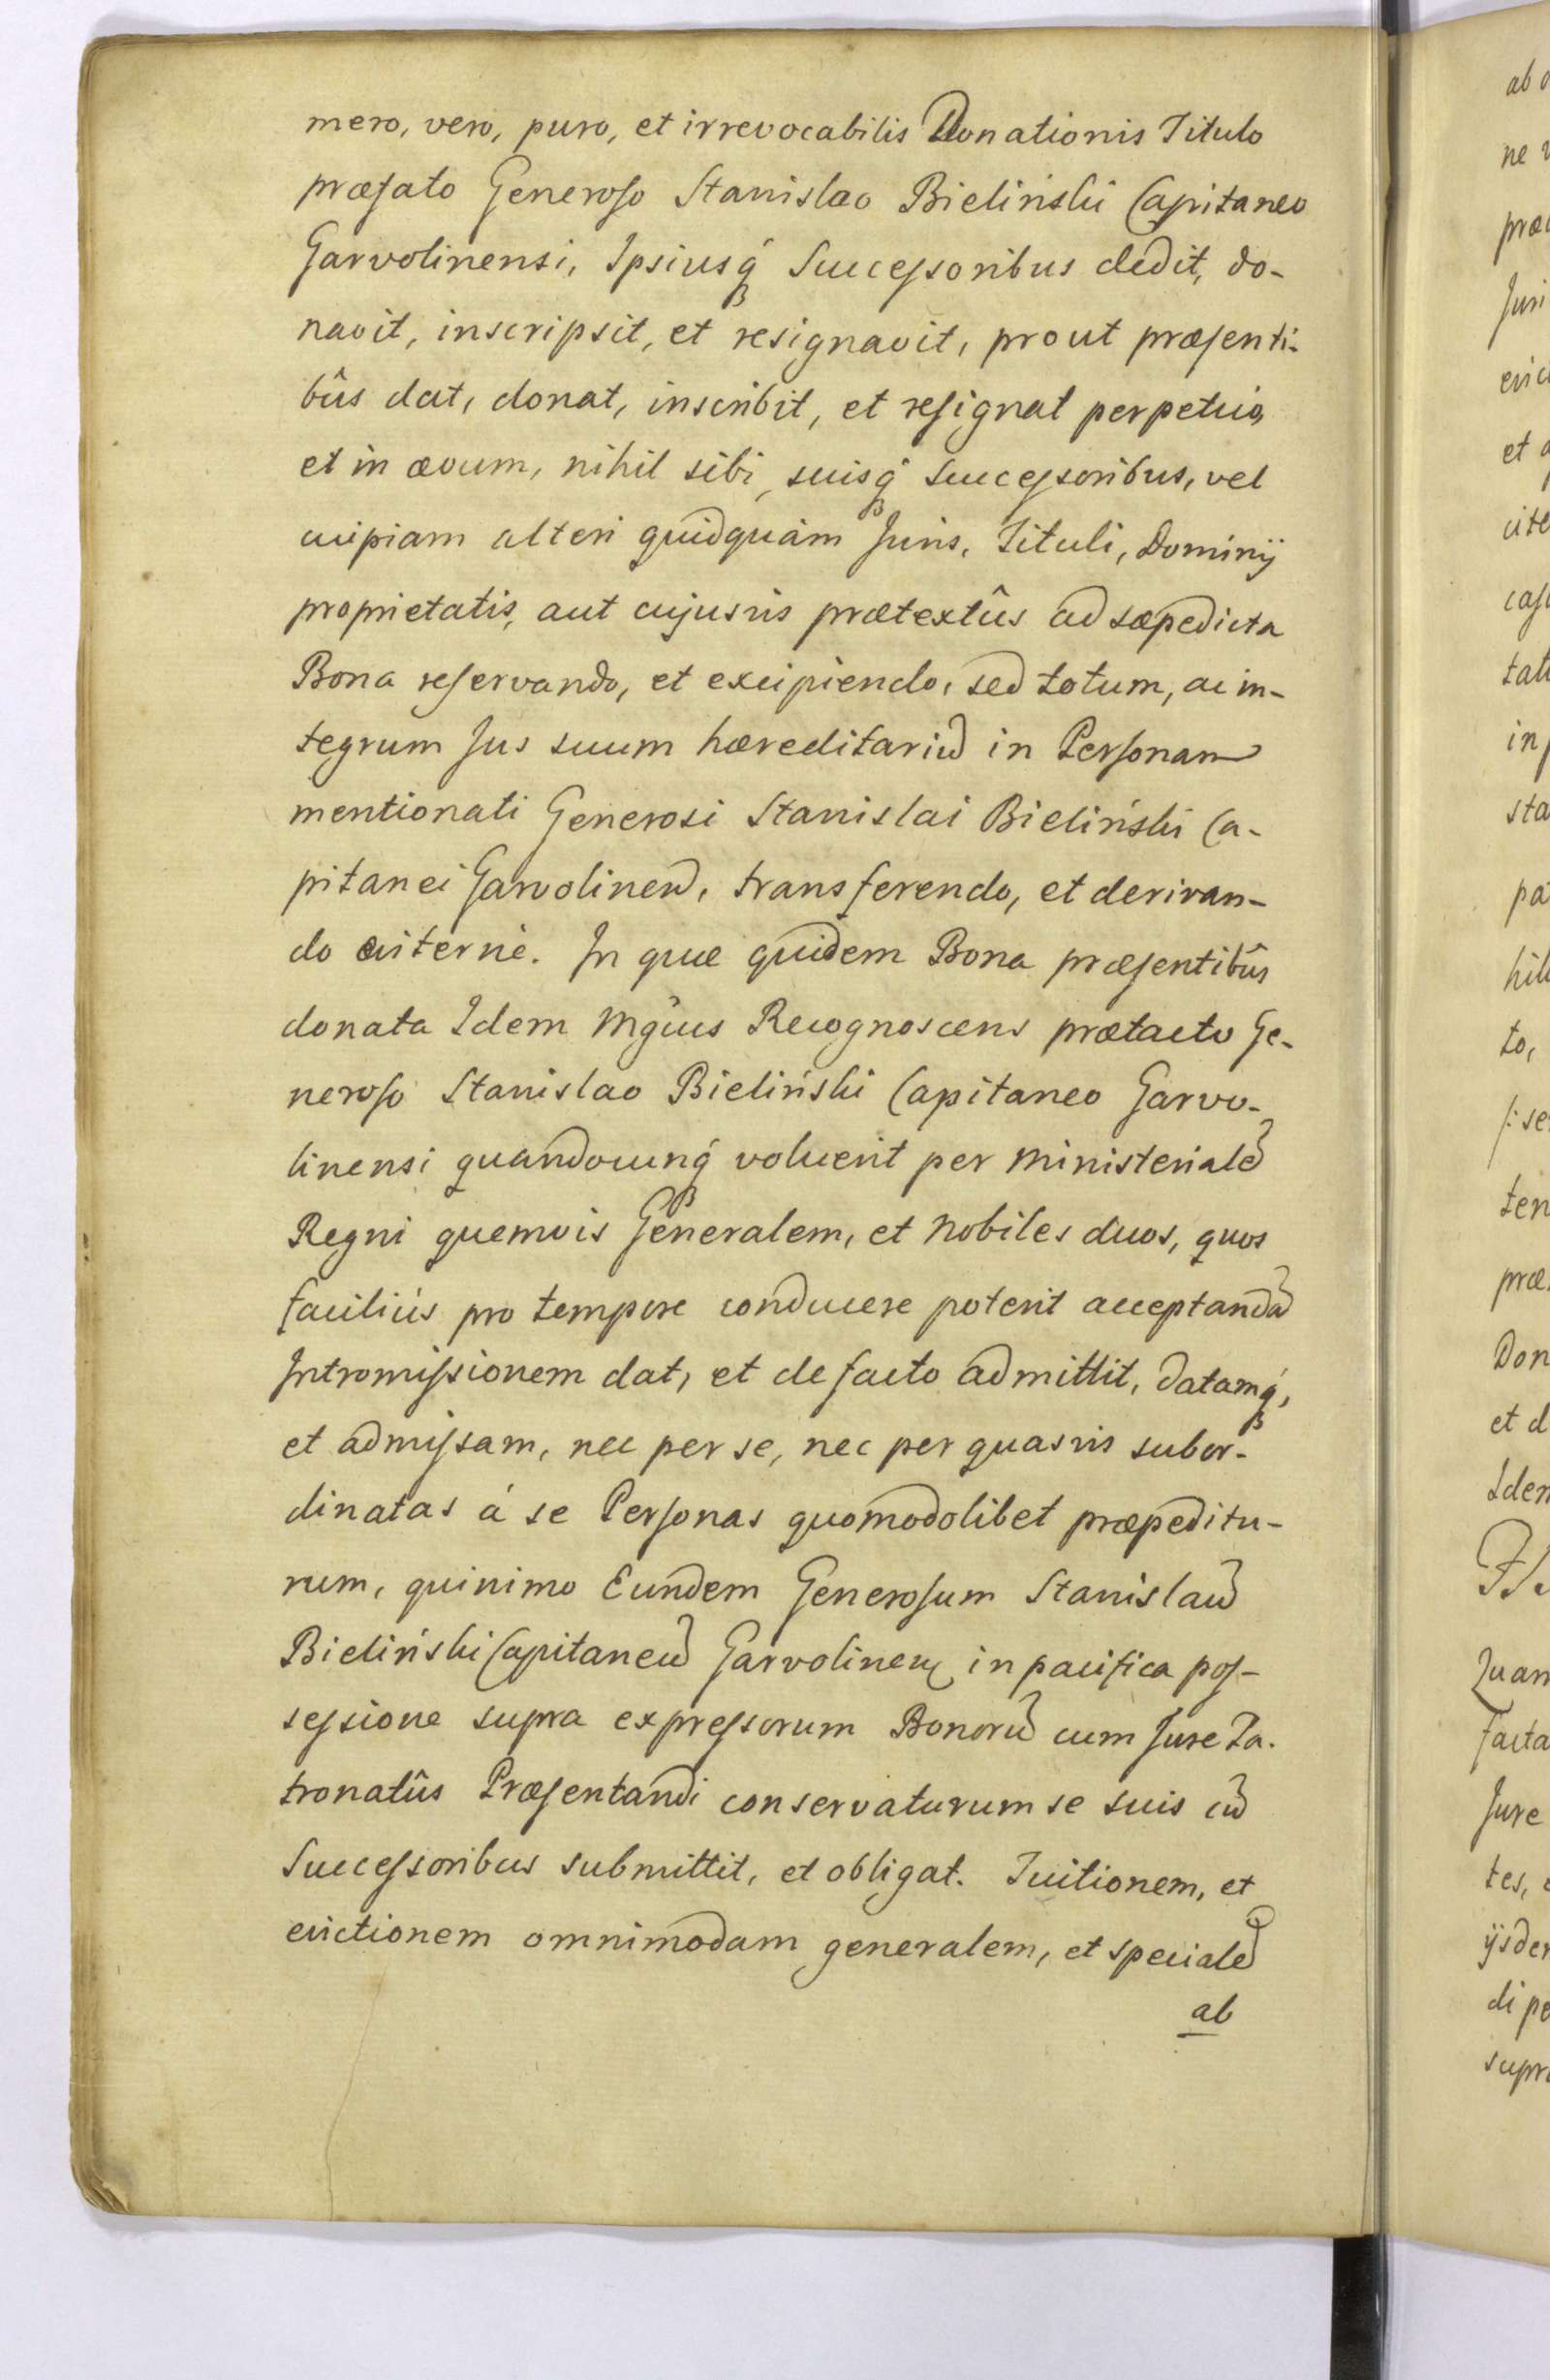 mero, vero, puro, et irrevocabilis Donationis Titulo
præfato Generoso Stanislao Bieliński Capitaneo
Garvolinensi, Ipsiusq́ꝫ Successoribus dedit, do-
navit, inscripsit, et resignavit, prout præsenti-
bûs dat, donat, inscribit, et resignat perpetuo,
et in ævum, nihil sibi, suisq́ꝫ Successoribus, vel
cuipiam alteri quidquàm Juris, Tituli, Dominij
proprietatis, aut cujusvis prætextûs ad sæpedicta
Bona reservando, et excipiendo, sed totum, ac in-
tegrum Jus suum hæreditariũ in Personam
mentionati Generosi Stanislai Bieliński Ca-
pitanei Garvolineñ, transferendo, et derivan-
do æviternè. In quæ quidem Bona præsentibûs
donata Idem Mgcus Recognoscens prætacto Ge-
neroso Stanislao Bieliński Capitaneo Garvo-
linensi quandocunq́ꝫ voluerit per Ministerialẽ
Regni quemvis Generalem, et Nobiles duos, quos
faciliùs pro tempore conducere poterit acceptandã
Intromissionem dat, et de facto admittit, datamq́ꝫ,
et admissam, nec per se, nec per quasvis subor-
dinatas á se Personas quomodolibet præpeditu-
rum, quinimo Eundem Generosum Stanislaũ
Bieliński Capitaneũ Garvolineñ in pacifica pos-
sessione supra expressorum Bonorũ cum Jure Pa-
tronatûs Præsentandi conservaturum se suis cũ
Successoribus submittit, et obligat. Tuitionem, et
evictionem omnimodam generalem, et specialẽ
ab